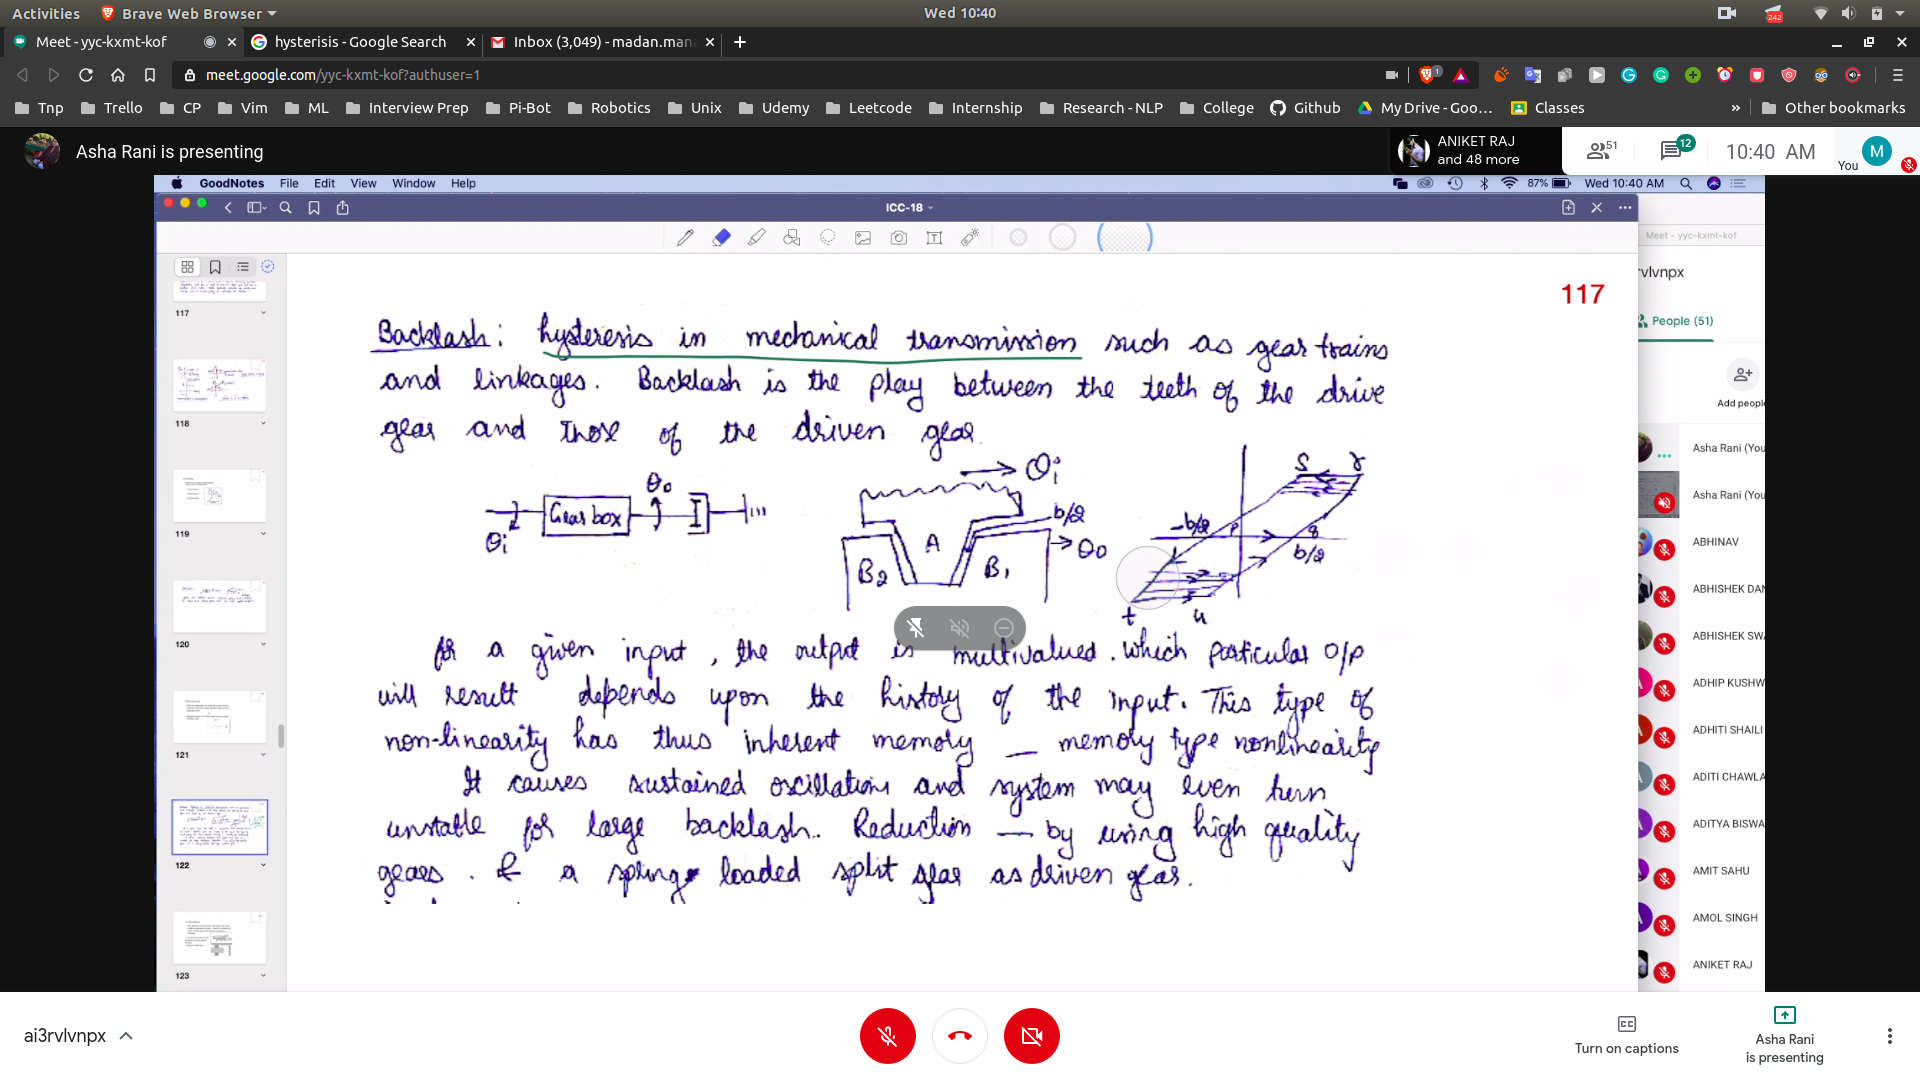 Activities Brave Web Browser Wed 10:40 242
Meet - yyc-kxmt-kof hysterisis - Google Search Inbox (3,049) - madan.man
meet.google.com/yyc-kxmt-kof?authuser=1
Tnp Trello CP Vim ML Interview Prep Pi-Bot Robotics Unix Udemy Leetcode Internship Research - NLP College Github My Drive - Goo… Classes » Other bookmarks
Asha Rani is presenting
ANIKET RAJ
and 48 more
51 12 10:40 AM You M
GoodNotes File Edit View Window Help 87% Wed 10:40 AM
ICC-18
Meet - yyc-kxmt-kof
rvlvnpx
People (51)
Add people
117
118
119
120
121
122
123
117
Backlash: hysteresis in mechanical transmission such as gear trains
and linkages. Backlash is the play between the teeth of the drive
gear and those of the driven gear.
θi Gear box θo I
θi A B2 B1 b/2 θo
S r -b/2 p q b/2 t u
for a given input, the output is multivalued. which particular O/P
will result depends upon the history of the input. This type of
non-linearity has thus inherent memory — memory type nonlinearity
It causes sustained oscillations and system may even turn
unstable for large backlash. Reduction — by using high quality
gears. & a spring loaded split gear as driven gear.
Asha Rani (You
Asha Rani (You
ABHINAV
ABHISHEK DAN
ABHISHEK SWA
ADHIP KUSHW
ADHITI SHAILI
ADITI CHAWLA
ADITYA BISWA
AMIT SAHU
AMOL SINGH
ANIKET RAJ
ai3rvlvnpx
Turn on captions
Asha Rani
is presenting